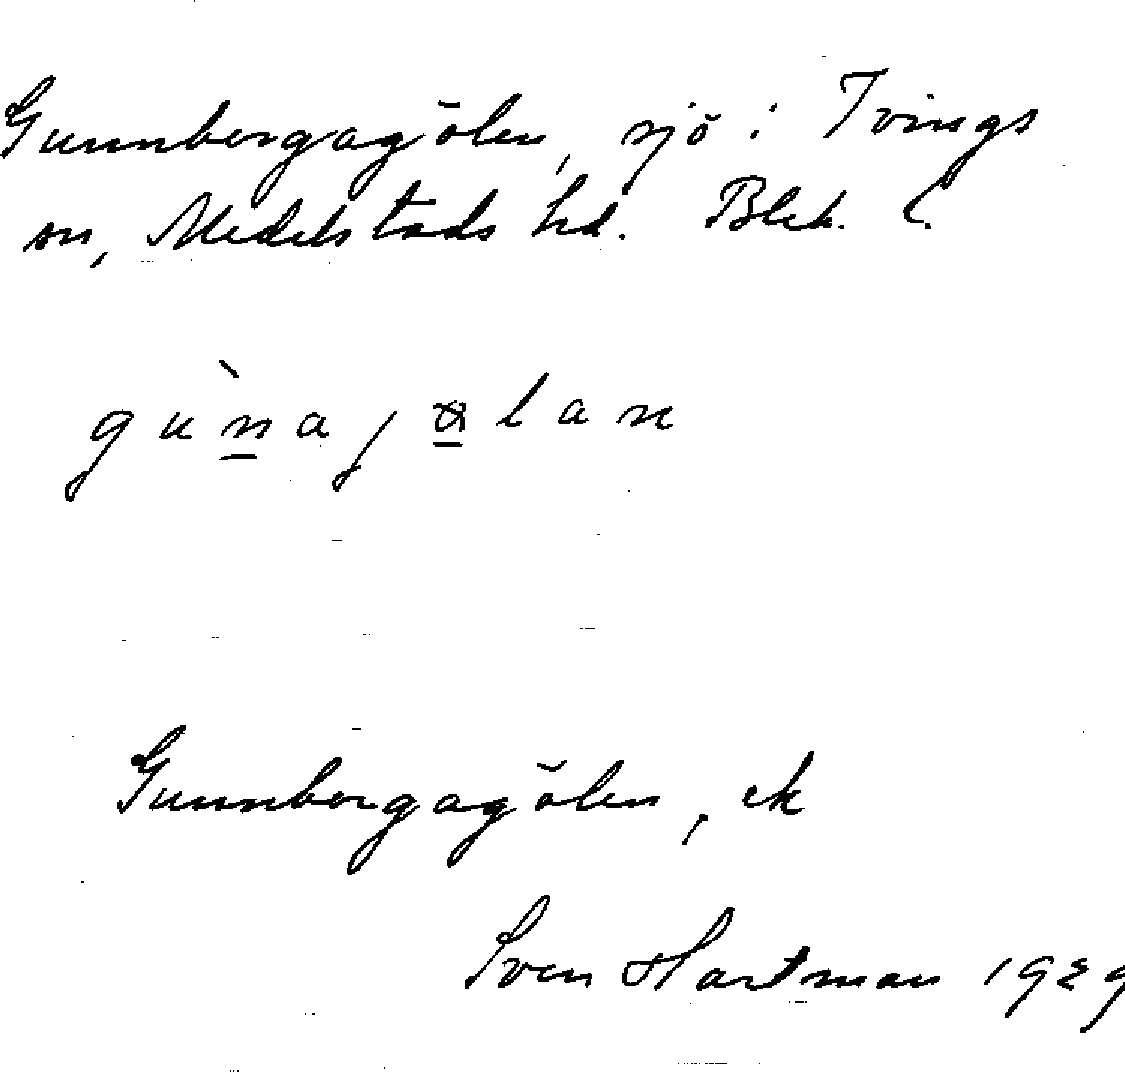 Gunnbergagölen, sjö i Tvings
sn, Medelstads hd. Blek. l.
gùnajölan
Gunnbergagölen, ek
Sven Hartman 1929